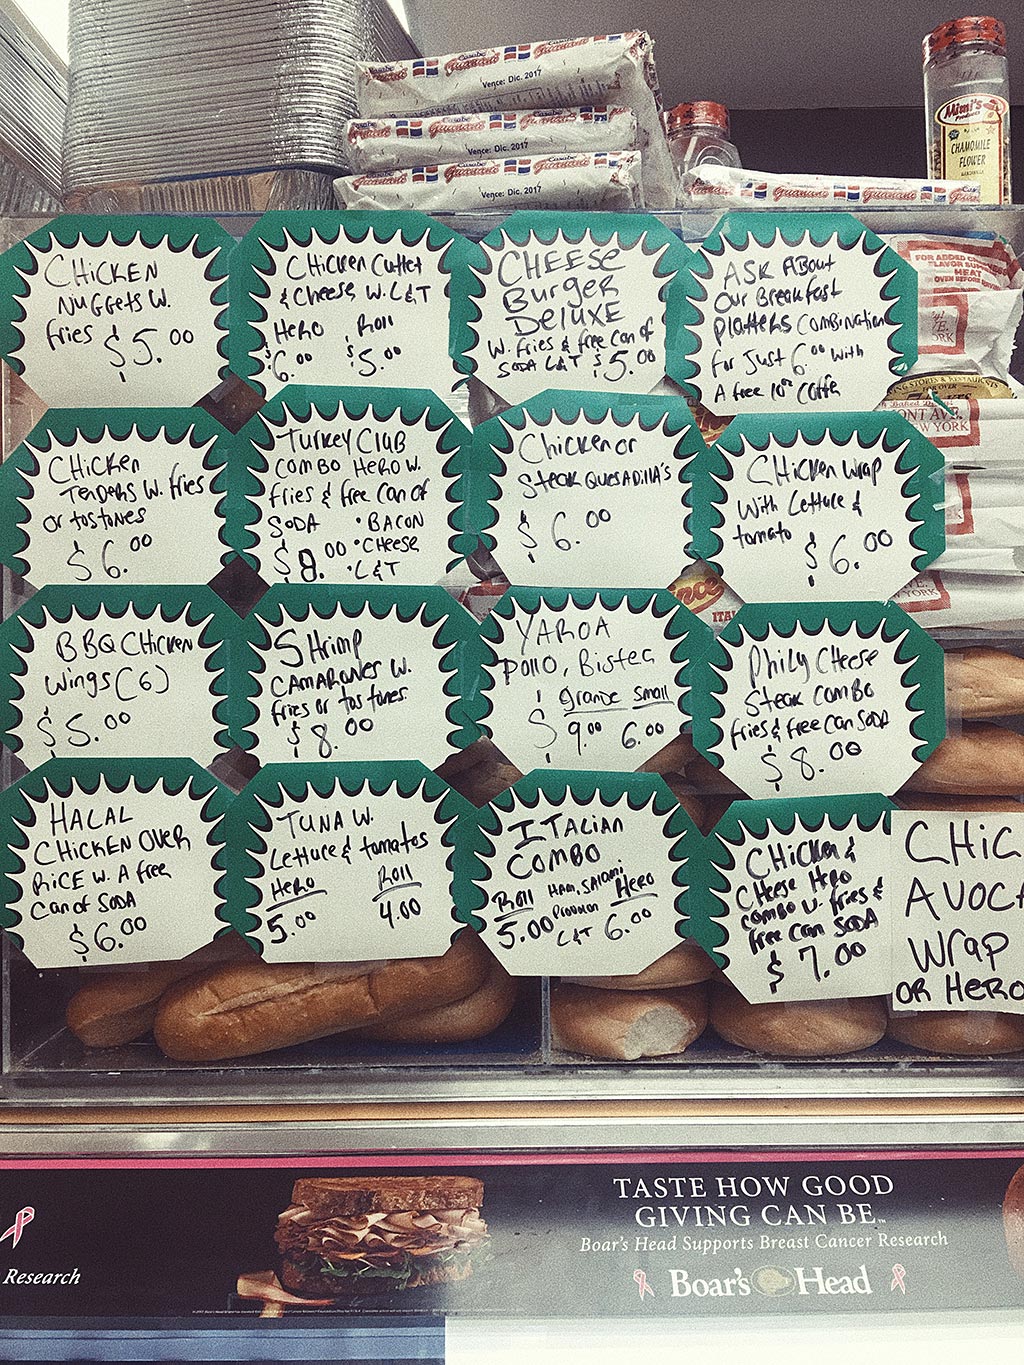 Casabe Guaraguano
Vence: Dic. 2017
Vence: Dic. 2017
Vence: Dic. 2017
Mimi's
Products
CHAMOMILE
FLOWER
MANZANILLA
CHICKEN
NuggeTs W.
fries $5.00
Chicken Cutlet
& Cheese W. L&T
Hero Roll
$6.00 $5.00
CHEESE
Burger
DELUXE
W. fries & free Can of
SODA L&T $5.00
ASK About
Our Breakfast
platters Combination
for Just 6.00 With
A free 10oz Coffee
FOR ADDED
MEAT
CHicken
Tenders W. fries
or tostones
$6.00
Turkey Club
Combo Hero W.
fries & free Can of
SODA • BACON
$8.00 • CHeese
• L&T
Chicken or
Steak QUESADilla's
$6.00
CHicken Wrap
With Lettuce &
tomato $6.00
STORES & RESTAURANTS
Baked
ONT AVE.
NEW YORK
BBQ CHicken
Wings (6)
$5.00
SHrimp
CAMARONES W.
fries or tostones
$8.00
YAROA
pollo, Bistec
grande Small
$9.00 6.00
Philly Cheese
Steak Combo
fries & free Can SODA
$8.00
HALAL
CHicken OVER
RiCE W. A free
Can of SODA
$6.00
TUNA W.
Lettuce & tomatos
Hero Roll
5.00 4.00
ITALian
COMBO
Roll HAM, SALAMi, Hero
5.00 Provolon 6.00
L&T
CHicken &
CHeese Hero
Combo W. fries &
free Can SODA
$7.00
CHiC
AVOCA
Wrap
OR HERO
TASTE HOW GOOD
GIVING CAN BE™
Boar's Head Supports Breast Cancer Research
Boar's Head
Research